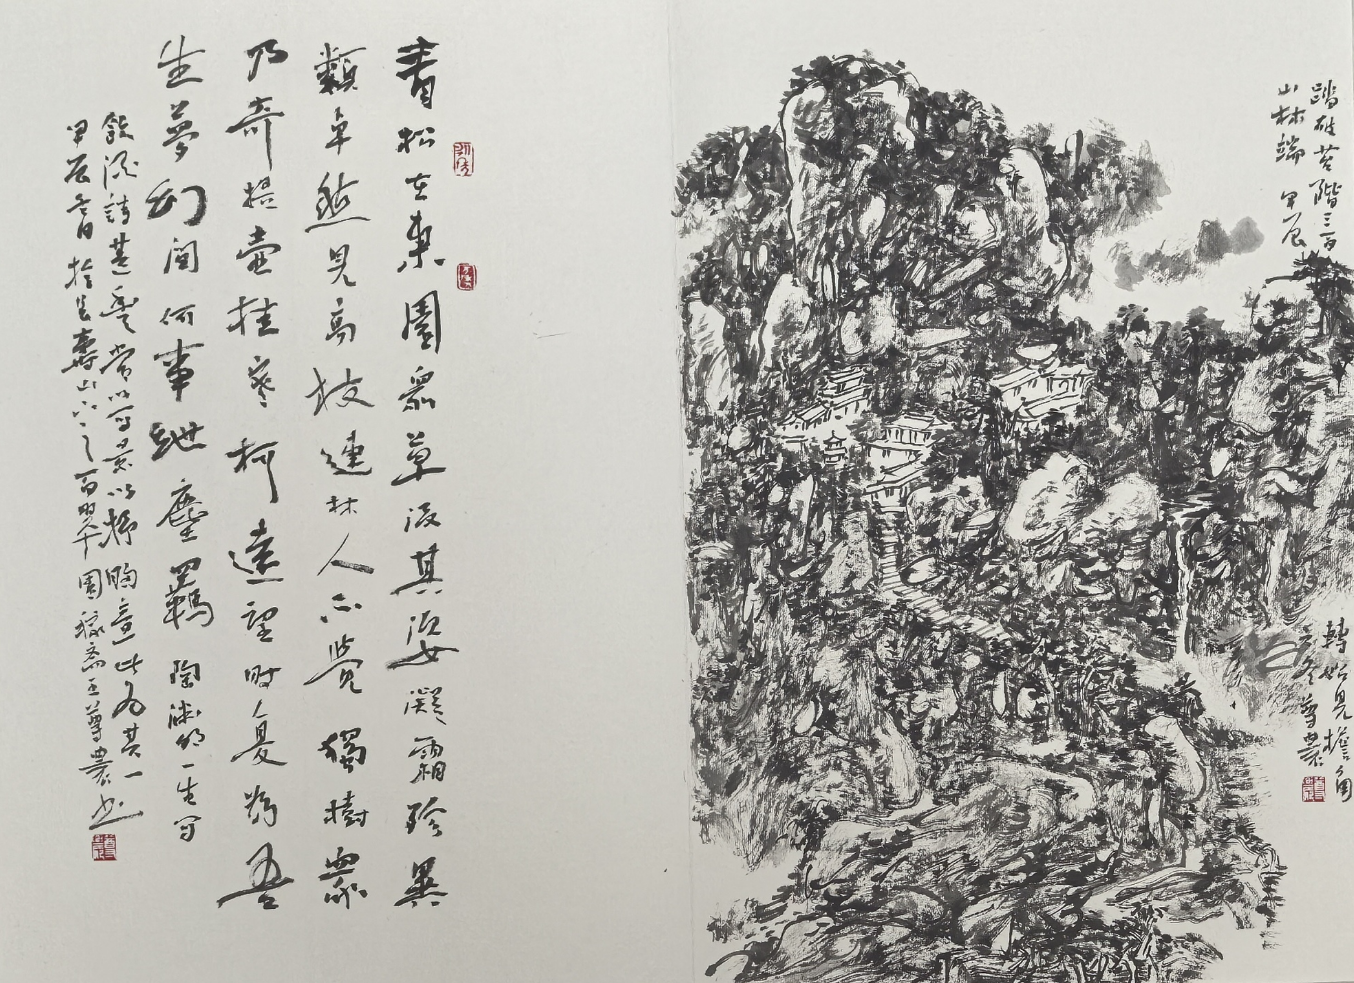 踏破苔階三百
轉始見檐角
山林端 甲辰
冬尊農
青松在東園眾草沒其姿凝霜殄異
類卓然見高枝連林人不覺獨樹眾
乃奇提壺挂寒柯遠望時復為吾
生夢幻間何事紲塵羈 陶淵明一生寫
飲酒詩甚豐常以寫景以抒胸意此為其一
甲辰夏日於萬壽山下之百翠園齋王尊農書